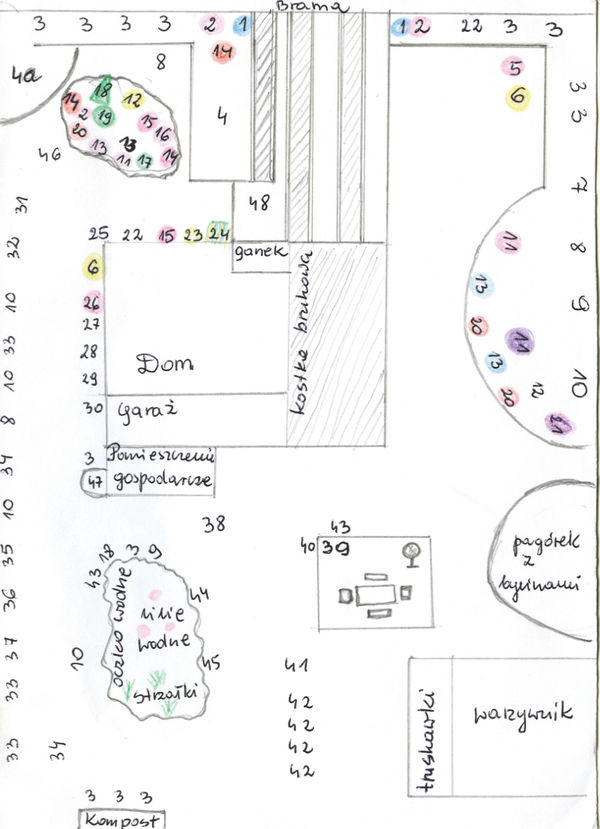 Brama
3 3 3 3 2 1
1 2 22 3 3
14
4a
8
5
3
6
3
18
12
14
2
19
4
15
20
16
13
13
46
11
17
14
7
31
48
25 22 15 23 24
32
ganek
11
8
6
kostka brukowa
26
13
9
10
27
20
11
33
28
Dom
13
10
29
12
10
30
garaż
20
8
21
3
Pomieszczenia
47
gospodarcze
34
10
38
43
40
39
pagórek
z
bylinami
35
18 3 9
43
oczko wodne
44
36
lilie
wodne
37
10
45
41
33
strzałki
42
truskawki
warzywnik
42
42
33
34
42
3 3 3
kompost